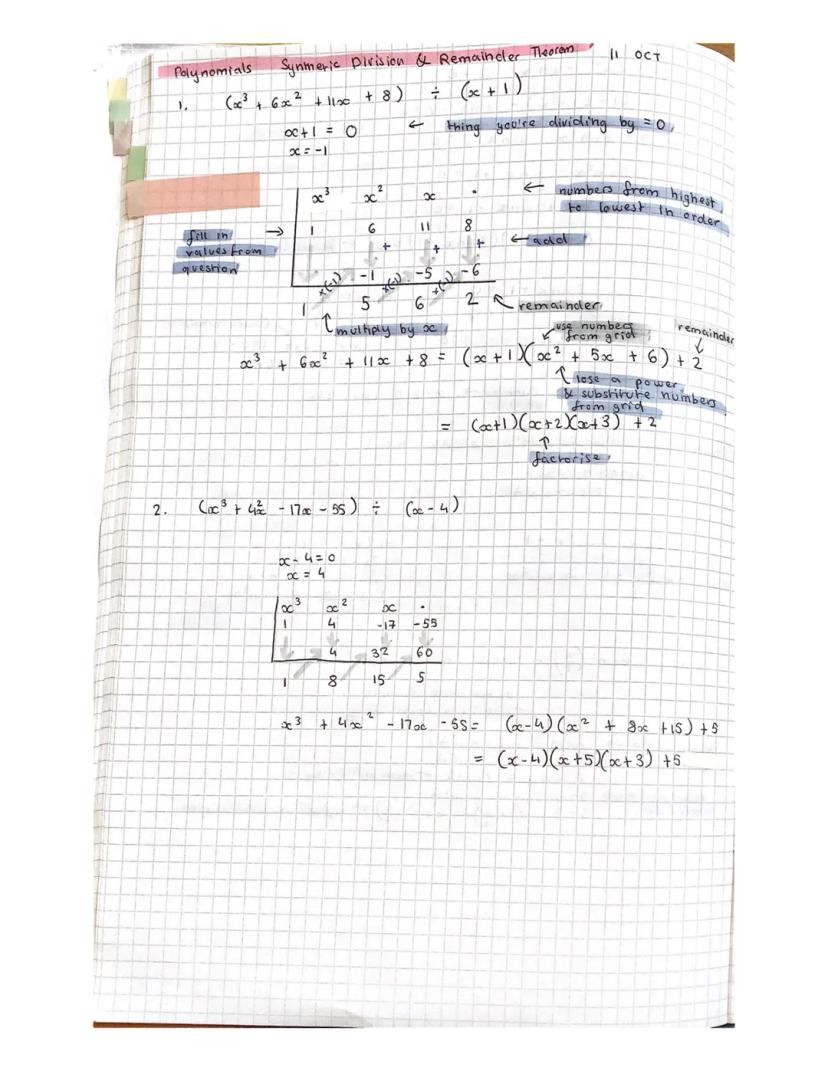 Polynomials Synmeric Division & Remainder Theorem 11 OCT
1. (x³ + 6x² + 11x + 8) ÷ (x + 1)
x+1 = 0 ← thing you're dividing by = 0
x = -1
x³ x² x · ← numbers from highest to lowest in order
fill in values from question → 1 6 11 8
+ + + ← add
x(-1) -1 x(-1) -5 x(-1) -6
1 5 6 2 ↖ remainder
↑ multiply by x
use numbers from grid
remainder
x³ + 6x² + 11x + 8 = (x + 1)(x² + 5x + 6) + 2
↑ lose a power & substitute numbers from grid
= (x+1)(x+2)(x+3) + 2
↑
factorise
2. (x³ + 4x² - 17x - 55) ÷ (x - 4)
x - 4 = 0
x = 4
x³ x² x ·
1 4 -17 -55
4 32 60
1 8 15 5
x³ + 4x² - 17x - 55 = (x-4)(x² + 8x + 15) + 5
= (x-4)(x+5)(x+3) + 5